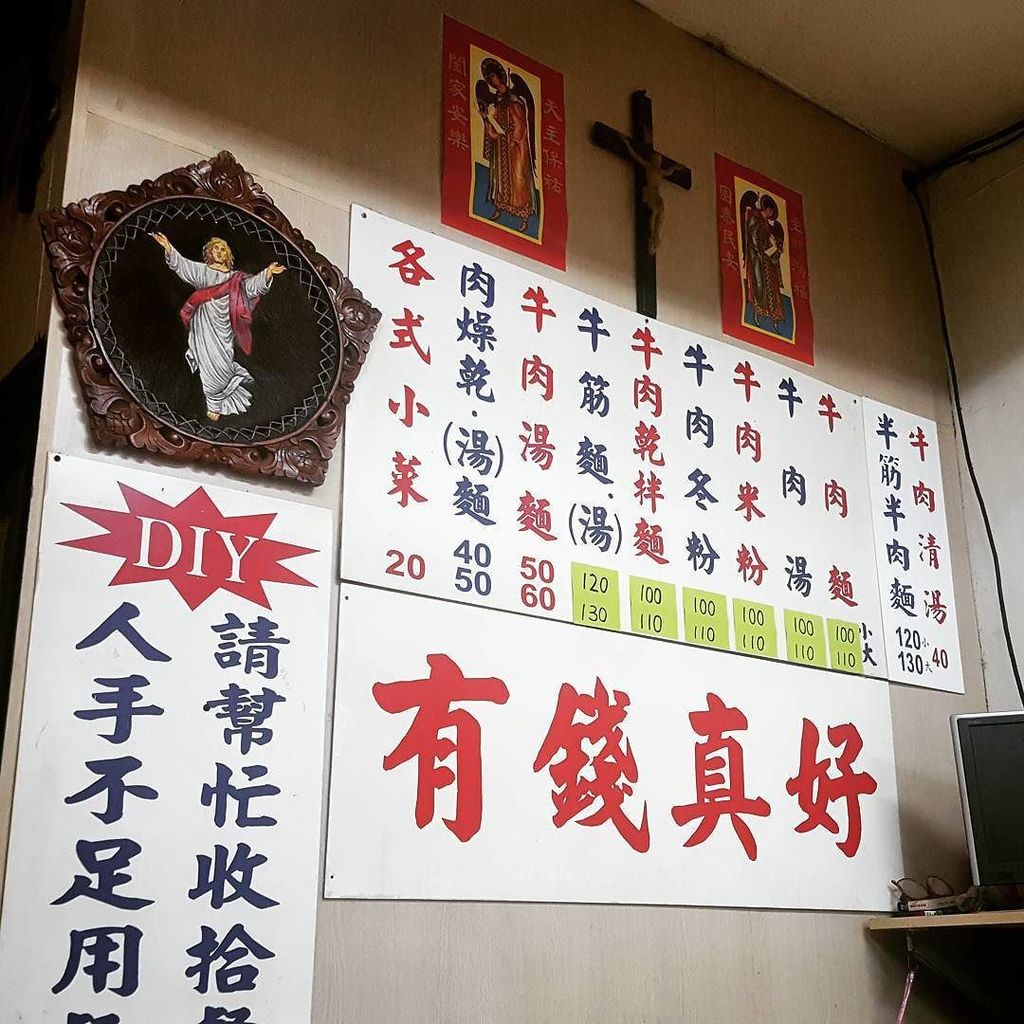 天主保祐
闔家安樂
國泰民安
牛肉清湯 40
半筋半肉麵 120小 130大
牛肉麵 100 110 小 大
牛肉湯 100 110
牛肉米粉 100 110
牛肉冬粉 100 110
牛肉乾拌麵 100 110
牛筋麵·(湯) 120 130
牛肉湯麵 50 60
肉燥乾·(湯)麵 40 50
各式小菜 20
有錢真好
DIY
請幫忙收拾
人手不足用